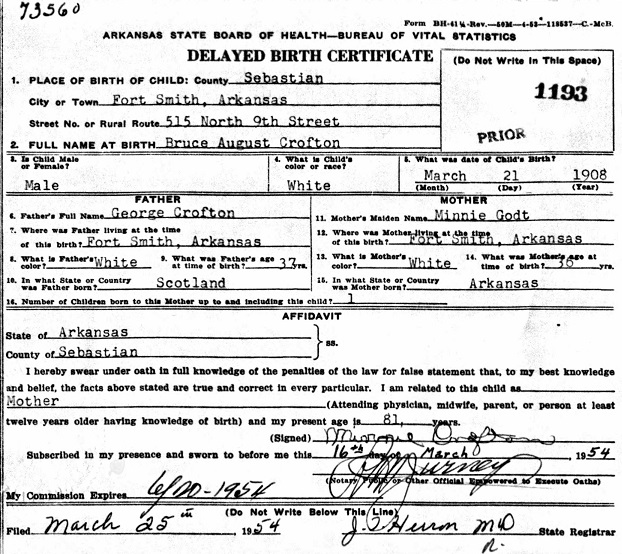 73560
Form BH-41½-Rev.—50M—4-52—118537—C.-McB.
ARKANSAS STATE BOARD OF HEALTH—BUREAU OF VITAL STATISTICS
DELAYED BIRTH CERTIFICATE
(Do Not Write In This Space)
1193
PRIOR
1. PLACE OF BIRTH OF CHILD: County Sebastian
City or Town Fort Smith, Arkansas
Street No. or Rural Route 515 North 9th Street
2. FULL NAME AT BIRTH Bruce August Crofton
3. Is Child Male or Female? Male
4. What is Child's color or race? White
5. What was date of Child's Birth?
March 21 1908
(Month) (Day) (Year)
FATHER
6. Father's Full Name George Crofton
7. Where was Father living at the time
of this birth? Fort Smith, Arkansas
8. What is Father's color? White 9. What was Father's age at time of birth? 37 yrs.
10. In what State or Country was Father born? Scotland
MOTHER
11. Mother's Maiden Name Minnie Godt
12. Where was Mother living at the time
of this birth? Fort Smith, Arkansas
13. What is Mother's color? White 14. What was Mother's age at time of birth? 36 yrs.
15. In what State or Country was Mother born? Arkansas
16. Number of Children born to this Mother up to and including this child? 1
AFFIDAVIT
State of Arkansas
County of Sebastian
} ss.
I hereby swear under oath in full knowledge of the penalties of the law for false statement that, to my best knowledge
and belief, the facts above stated are true and correct in every particular. I am related to this child as
Mother (Attending physician, midwife, parent, or person at least
twelve years older having knowledge of birth) and my present age is 81, years.
(Signed) Minnie Crofton
Subscribed in my presence and sworn to before me this 16th day of March 1954
(Notary Public or Other Official Empowered to Execute Oaths)
My Commission Expires 6/20-1954
(Do Not Write Below This Line)
Filed March 25 th 1954 State Registrar